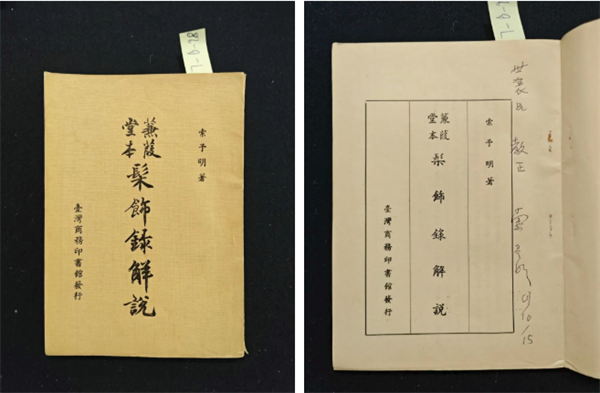 索予明著
蒹葭
堂本
髤飾錄解說
臺灣商務印書館發行
世襄兄 教正 索予明
索予明著
蒹葭
堂本
髤飾錄解說
臺灣商務印書館發行